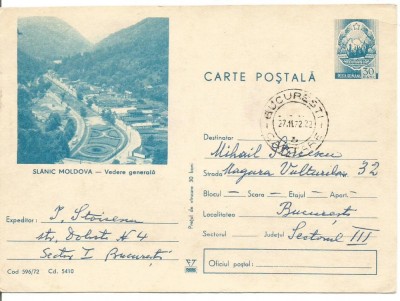 CARTE POŞTALĂ
BUCUREŞTI
27.11.72.22
SLĂNIC MOLDOVA — Vedere generală
Expeditor: I. Stoicescu
str. N 4
Sector I Bucureşti
Cod 596/72 Cd. 5410
Preţul de vînzare 50 bani
Destinatar Mihail Stoicescu
Strada Magura Vulturului 32
Blocul — Scara — Etajul — Apart. —
Localitatea Bucureşti
Sectorul Judeţul Sectorul III
Oficiul poştal: